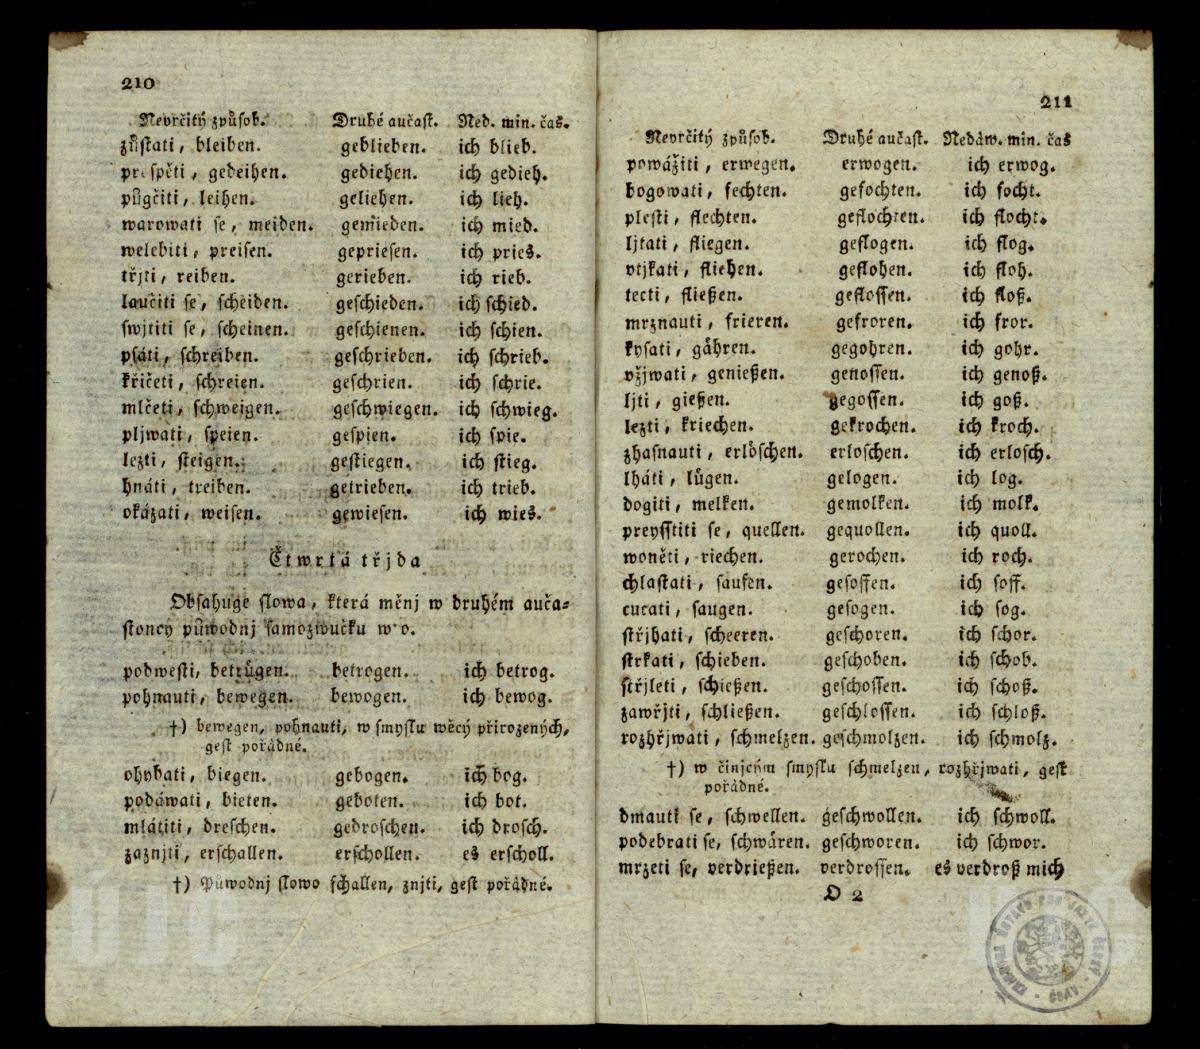 210
Nevrčitý způsob. Druhé aučast. Ned. min. čas.
zůstati, bleiben. geblieben. ich blieb.
prospěti, gedeihen. gediehen. ich gedieh.
půgčiti, leihen. geliehen. ich lieh.
warowati se, meiden. gemieden. ich mied.
welebiti, preisen. gepriesen. ich pries.
třjti, reiben. gerieben. ich rieb.
laučiti se, scheiden. geschieden. ich schied.
swjtiti se, scheinen. geschienen. ich schien.
psáti, schreiben. geschrieben. ich schrieb.
křičeti, schreien. geschrien. ich schrie.
mlčeti, schweigen. geschwiegen. ich schwieg.
pljwati, speien. gespien. ich spie.
lezti, steigen. gestiegen. ich stieg.
hnáti, treiben. getrieben. ich trieb.
okázati, weisen. gewiesen. ich wies.
Čtwrtá třjda
Obsahuge slowa, která měnj w druhém auča-
stoncy půwodnj samozwučku w o.
podwesti, betrügen. betrogen. ich betrog.
pohnauti, bewegen. bewogen. ich bewog.
†) bewegen, pohnauti, w smyslu wěcý přirozených,
gest pořádné.
ohýbati, biegen. gebogen. ich bog.
podáwati, bieten. geboten. ich bot.
mlátiti, dreschen. gedroschen. ich drosch.
zaznjti, erschallen. erschollen. es erscholl.
†) Půwodnj slowo schallen, znjti, gest pořádné.
211
Nevrčitý způsob. Druhé aučast. Nedáw. min. čas
powážiti, erwegen. erwogen. ich erwog.
bogowati, fechten. gefochten. ich focht.
plesti, flechten. geflochten. ich flocht.
ljtati, fliegen. geflogen. ich flog.
vtjkati, fliehen. geflohen. ich floh.
tecti, fließen. geflossen. ich floß.
mrznauti, frieren. gefroren. ich fror.
kysati, gähren. gegohren. ich gohr.
vžjwati, genießen. genossen. ich genoß.
ljti, gießen. gegossen. ich goß.
lezti, kriechen. gekrochen. ich kroch.
zhasnauti, erlöschen. erloschen. ich erlosch.
lháti, lügen. gelogen. ich log.
dogiti, melken. gemolken. ich molk.
preysstiti se, quellen. gequollen. ich quoll.
woněti, riechen. gerochen. ich roch.
chlastati, saufen. gesoffen. ich soff.
cucati, saugen. gesogen. ich sog.
střjhati, scheeren. geschoren. ich schor.
strkati, schieben. geschoben. ich schob.
střjleti, schießen. geschossen. ich schoß.
zawřjti, schließen. geschlossen. ich schloß.
rozhřjwati, schmelzen. geschmolzen. ich schmolz.
†) w činjcým smyslu schmelzen, rozhřjwati, gest
pořádné.
dmauti se, schwellen. geschwollen. ich schwoll.
podebrati se, schwären. geschworen. ich schwor.
mrzeti se, verdrießen. verdrossen. es verdroß mich
O 2
ÚJČ
KNIHOVNA ÚSTAVU PRO JAZYK ČESKÝ - ČSAV -